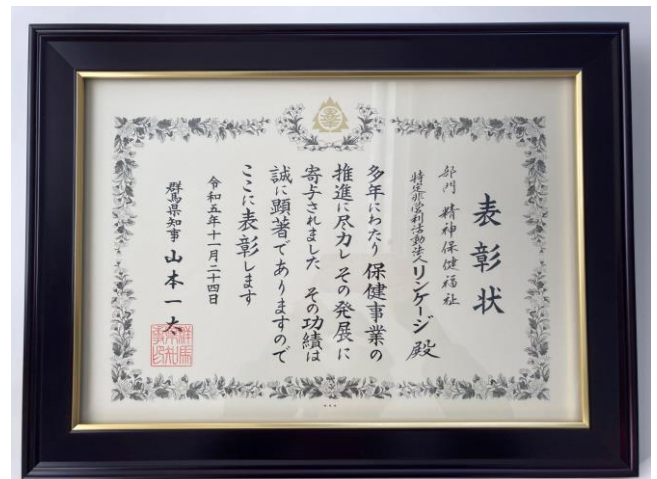 表彰状
部門 精神保健福祉
特定非営利活動法人リンケージ 殿
多年にわたり 保健事業の
推進に尽力し その発展に
寄与されました その功績は
誠に顕著でありますので
ここに表彰します
令和五年十一月二十四日
群馬県知事 山本一太